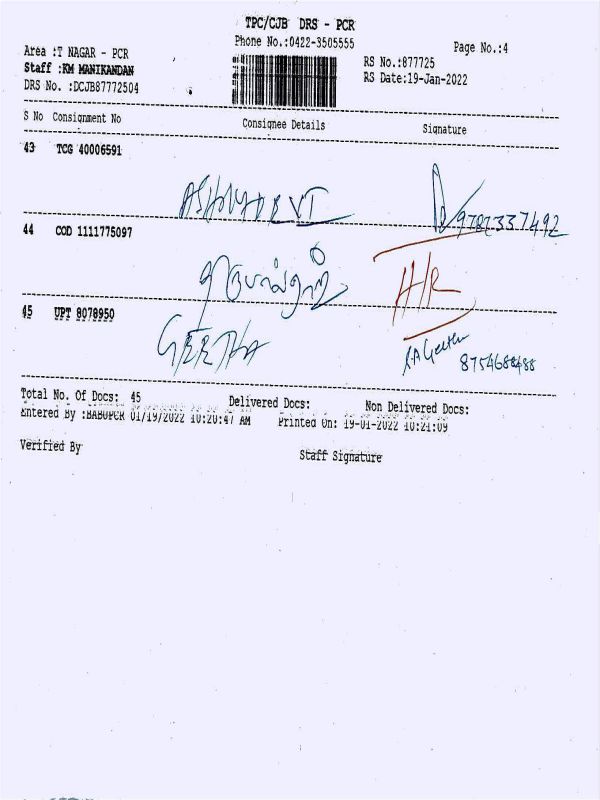 TPC/CJB DRS - PCR
Phone No.:0422-3505555
Page No.:4
Area :T NAGAR - PCR
Staff :KM MANIKANDAN
DRS No. :DCJB87772504
RS No.:877725
RS Date:19-Jan-2022
S No Consignment No Consignee Details Signature
43 TCG 40006591
ASHWADEVI 9787337492
44 COD 1111775097
H/R
45 UPT 8078950
GEETHA
8754688488
Total No. Of Docs: 45 Delivered Docs: Non Delivered Docs:
Entered By :BABUPCR 01/19/2022 10:20:47 AM Printed On: 19-01-2022 10:21:09
Verified By Staff Signature